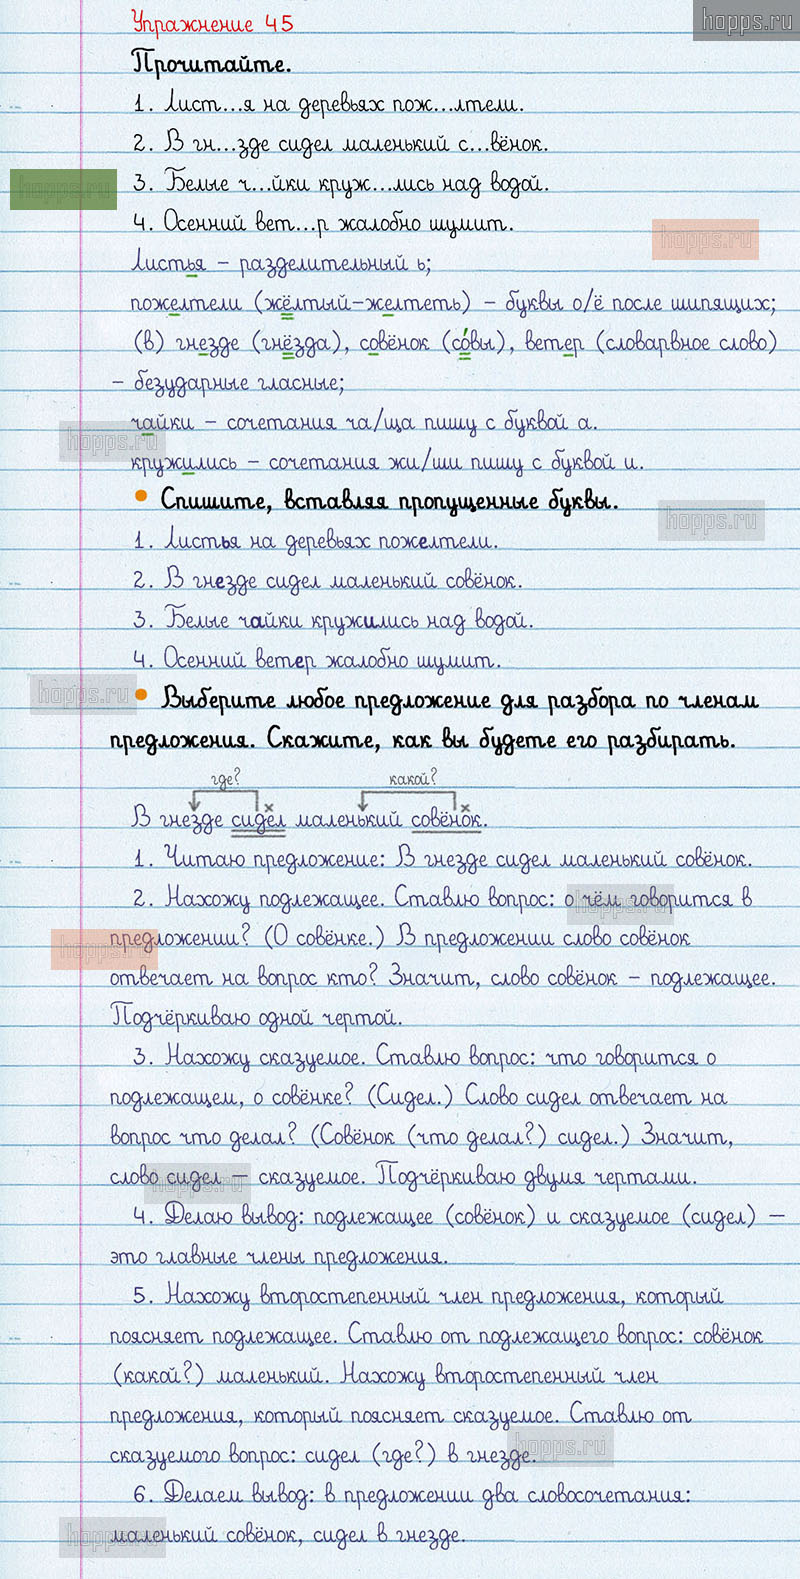 hopps.ru
Упражнение 45
Прочитайте.
1. Лист...я на деревьях пож...лтели.
2. В гн...зде сидел маленький с...вёнок.
3. Белые ч...йки круж...лись над водой.
hopps.ru
4. Осенний вет...р жалобно шумит.
hopps.ru
Листья – разделительный ь;
пожелтели (жёлтый-желтеть) – буквы о/ё после шипящих;
(в) гнезде (гнёзда), совёнок (со́вы), ветер (словарвное слово)
– безударные гласные;
чайки – сочетания ча/ща пишу с буквой а.
hopps.ru
кружились – сочетания жи/ши пишу с буквой и.
• Спишите, вставляя пропущенные буквы.
hopps.ru
1. Листья на деревьях пожелтели.
2. В гнезде сидел маленький совёнок.
3. Белые чайки кружились над водой.
4. Осенний ветер жалобно шумит.
hopps.ru
• Выберите любое предложение для разбора по членам
предложения. Скажите, как вы будете его разбирать.
где? какой?
В гнезде сидел маленький совёнок.
1. Читаю предложение: В гнезде сидел маленький совёнок.
2. Нахожу подлежащее. Ставлю вопрос: о чём говорится в
hopps.ru
предложении? (О совёнке.) В предложении слово совёнок
hopps.ru
отвечает на вопрос кто? Значит, слово совёнок – подлежащее.
Подчёркиваю одной чертой.
3. Нахожу сказуемое. Ставлю вопрос: что говорится о
подлежащем, о совёнке? (Сидел.) Слово сидел отвечает на
вопрос что делал? (Совёнок (что делал?) сидел.) Значит,
слово сидел – сказуемое. Подчёркиваю двумя чертами.
hopps.ru
4. Делаю вывод: подлежащее (совёнок) и сказуемое (сидел) –
это главные члены предложения.
5. Нахожу второстепенный член предложения, который
поясняет подлежащее. Ставлю от подлежащего вопрос: совёнок
(какой?) маленький. Нахожу второстепенный член
предложения, который поясняет сказуемое. Ставлю от
сказуемого вопрос: сидел (где?) в гнезде.
hopps.ru
6. Делаем вывод: в предложении два словосочетания:
маленький совёнок, сидел в гнезде.
hopps.ru